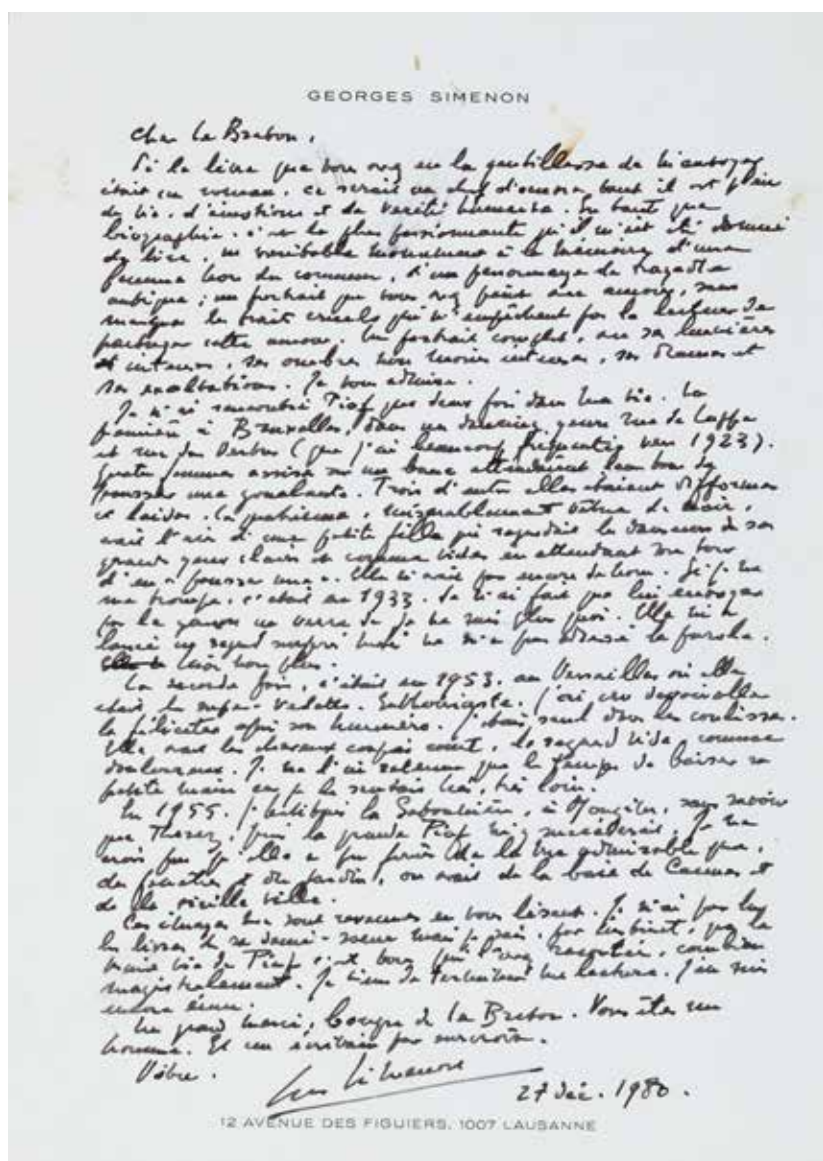 GEORGES SIMENON
Cher Le Breton,
Si le livre que vous avez eu la gentillesse de m'envoyer
était un roman, ce serait un chef d'œuvre tant il est plein
de vie, d'émotions et de vérité humaine. En tant que
biographie, c'est la plus passionnante qu'il m'ait été donné
de lire, un véritable monument à la mémoire d'une
femme hors du commun, d'un personnage de tragédie
antique ; un portrait que vous avez peint avec amour, sans
masquer les traits cruels qui n'empêchent pas le lecteur de
partager cette amour. Un portrait complet, avec ses lumières
et intenses, ses ombres non moins intenses, ses drames et
ses exaltations. Je vous admire.
Je n'ai rencontré Piaf que deux fois dans ma vie. La
première à Bruxelles, dans un dancing genre rue de Lappe
et rue des Vertus (que j'ai beaucoup fréquentés vers 1923).
Quatre femmes assises sur un banc attendaient leur tour de
pousser une goualante. Trois d'entre elles étaient difformes
et laides. La quatrième, misérablement vêtue de noir,
avait l'air d'une petite fille qui regardait les danseurs de ses
grands yeux clairs et comme vides en attendant son tour
d'en « pousser une ». Elle n'avait pas encore de nom. Si je ne
me trompe, c'était en 1933. Je n'ai fait que lui envoyer
par le garçon un verre de je ne sais plus quoi. Elle m'a
lancé un regard surpris mais ne m'a pas adressé la parole.
Moi non plus.
La seconde fois, c'était en 1953, au Versailles où elle
était la super-vedette. Enthousiaste, j'ai cru devoir aller
la féliciter après son numéro. J'étais seul dans les coulisses.
Elle avait les cheveux coupés court, le regard vide, comme
douloureux. Je ne l'ai retenue que le temps de baiser sa
petite main car je la sentais loin, très loin.
En 1955, j'habitais la Gatounière, à Mougins, sans savoir
que Thérèse, puis la grande Piaf m'y succéderait. Je ne
crois pas qu'elle a pu jouir de la vue admirable que,
des fenêtres et du jardin, on avait de la baie de Cannes et
de la vieille ville.
Ces images me sont revenues en vous lisant. Je n'ai pas lu
les livres de sa demi-sœur mais je sais, par instinct, que la
vraie vie de Piaf c'est vous qui l'avez racontée, combien
magistralement. Je viens de terminer ma lecture. J'en suis
encore ému.
Un grand merci, bougre de Le Breton. Vous êtes un
homme. Et un écrivain par surcroît.
Vôtre.
Georges Simenon
27 déc. 1980.
12 AVENUE DES FIGUIERS, 1007 LAUSANNE